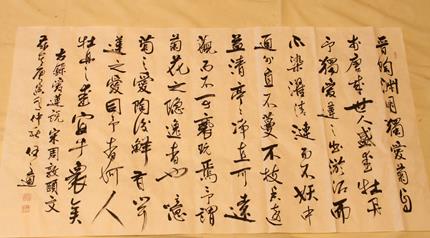 晉陶淵明獨愛菊自
李唐來世人盛愛牡丹
予獨愛蓮之出淤泥而
不染濯清漣而不妖中
通外直不蔓不枝香遠
益清亭亭淨直可遠
觀而不可褻玩焉予謂
菊花之隱逸者也噫
菊之愛陶後鮮有聞
蓮之愛同予者何人
牡丹之愛宜乎衆矣
右錄愛蓮說宋周敦頤文